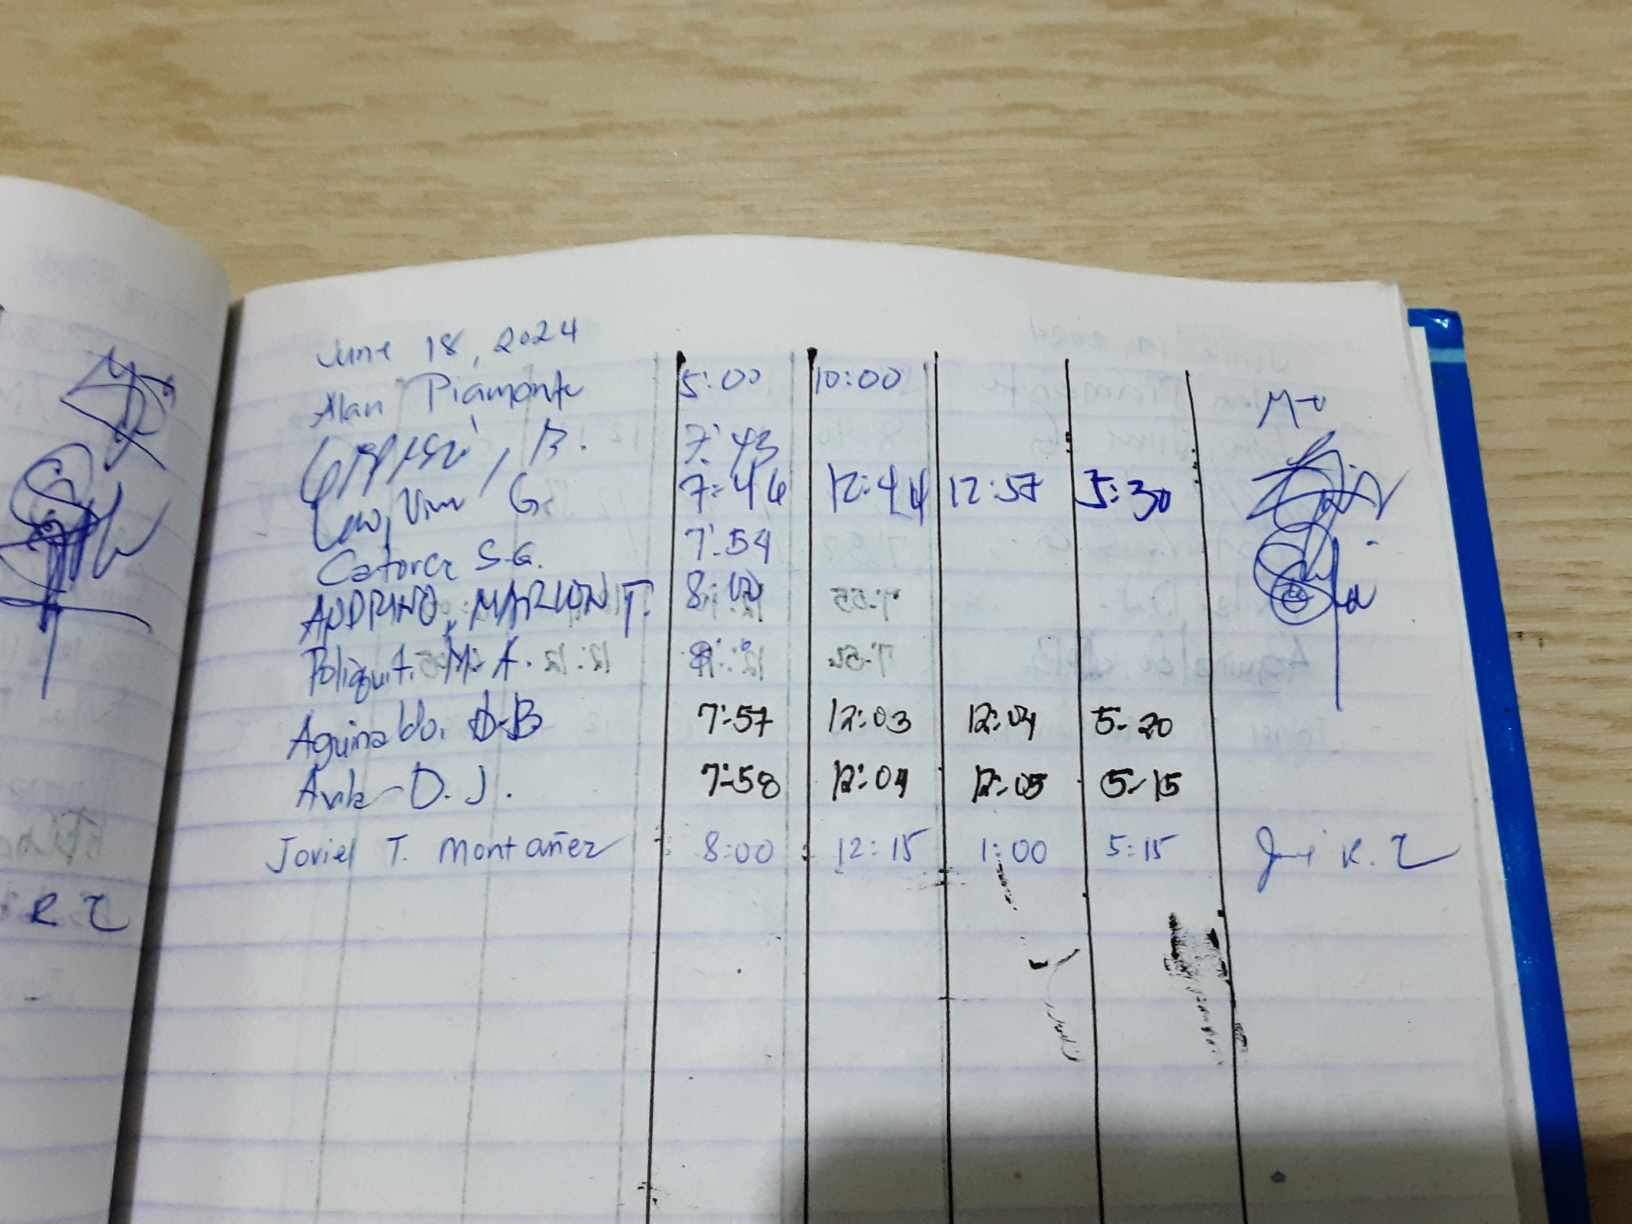 June 18, 2024
Alan Piamonte 5:00 10:00
B. 7:43
Law, Vim G. 7:46 12:44 12:57 5:30
Catorce S.G. 7:54
ANDRINO, MARLON T. 8:00
Poliquit. M. A.
Aguinaldo, D.B 7:57 12:03 12:04 5-20
Avila D.J. 7:58 12:04 12:05 5-15
Joviel T. Montañez 8:00 12:15 1:00 5:15